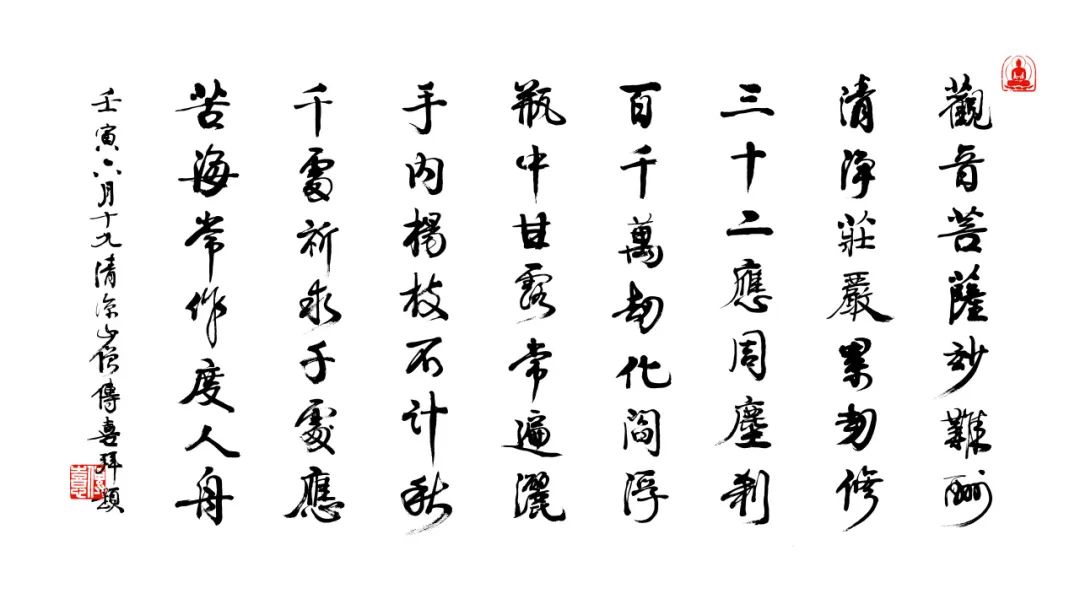 觀音菩薩玅難酬
清淨莊嚴累劫修
三十二應周塵剎
百千萬劫化閻浮
瓶中甘露常遍灑
手內楊枝不計秋
千處祈求千處應
苦海常作度人舟
壬寅六月十九清涼山僧傳喜拜題